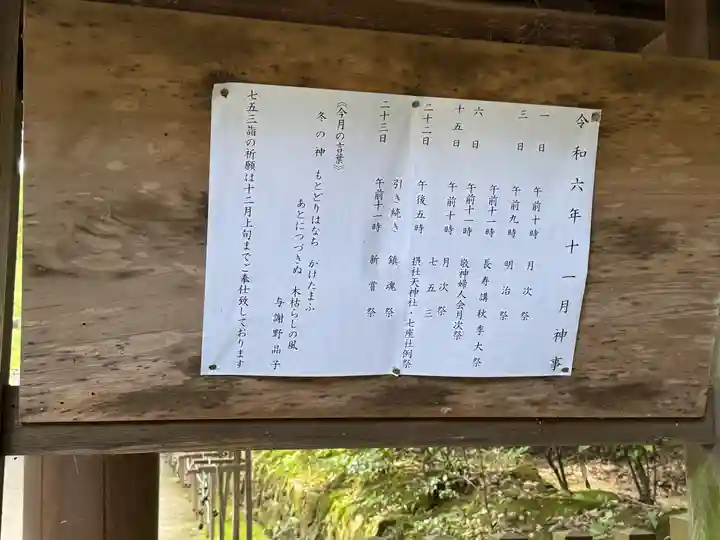 令和六年十一月神事
一日 午前十時 月次祭
三日 午前九時 明治祭
六日 午前十一時 長寿講秋季大祭
午前十一時 敬神婦人会月次祭
十五日 午前十時 月次祭
七五三
二十二日 午後五時 摂社天神社・七座社例祭
引き続き 鎮魂祭
二十三日 午前十一時 新嘗祭
《今月の言葉》
冬の神 もとどりはなち かけたまふ
あとにつづきぬ 木枯らしの風
与謝野晶子
七五三詣の祈願は十二月上旬までご奉仕致しております